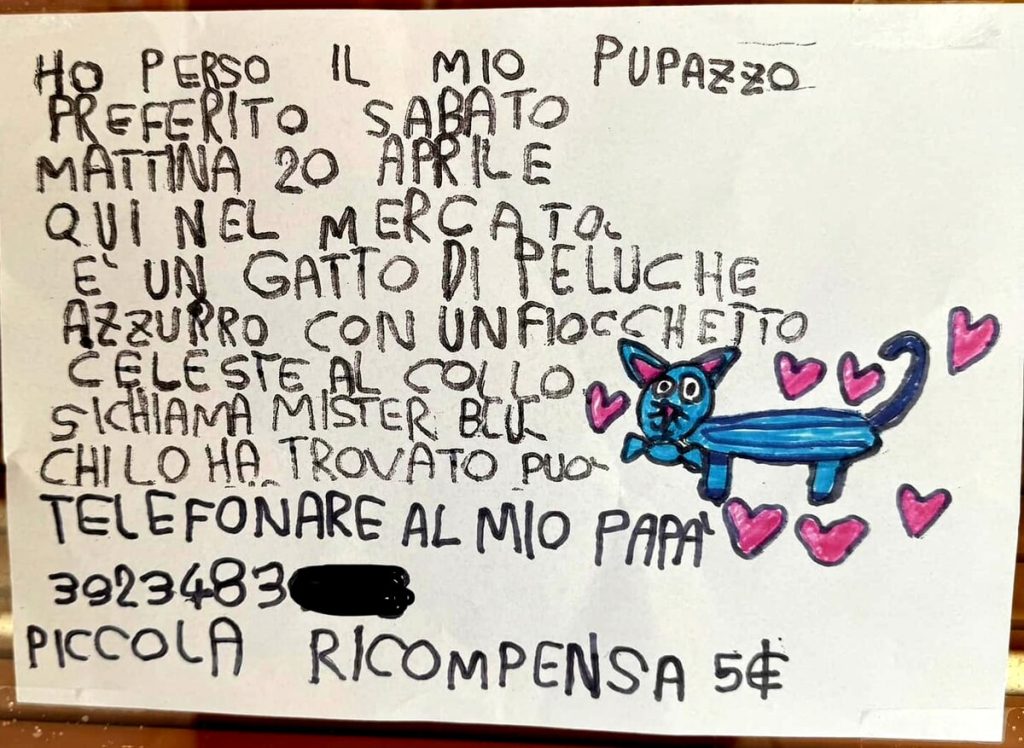 HO PERSO IL MIO PUPAZZO
PREFERITO SABATO
MATTINA 20 APRILE
QUI NEL MERCATO
E' UN GATTO DI PELUCHE
AZZURRO CON UN FIOCCHETTO
CELESTE AL COLLO.
SI CHIAMA MISTER BLU
CHI LO HA TROVATO PUO'
TELEFONARE AL MIO PAPA'
3923483
PICCOLA RICOMPENSA 5€